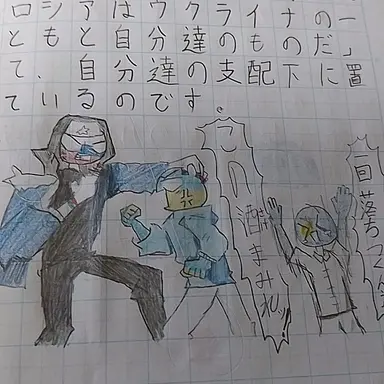 ロシアはウクライナの一
ともと自分達のものだ」
て、自分達の支配下に置
ているのです。
この酔まみれッ
一旦落ち